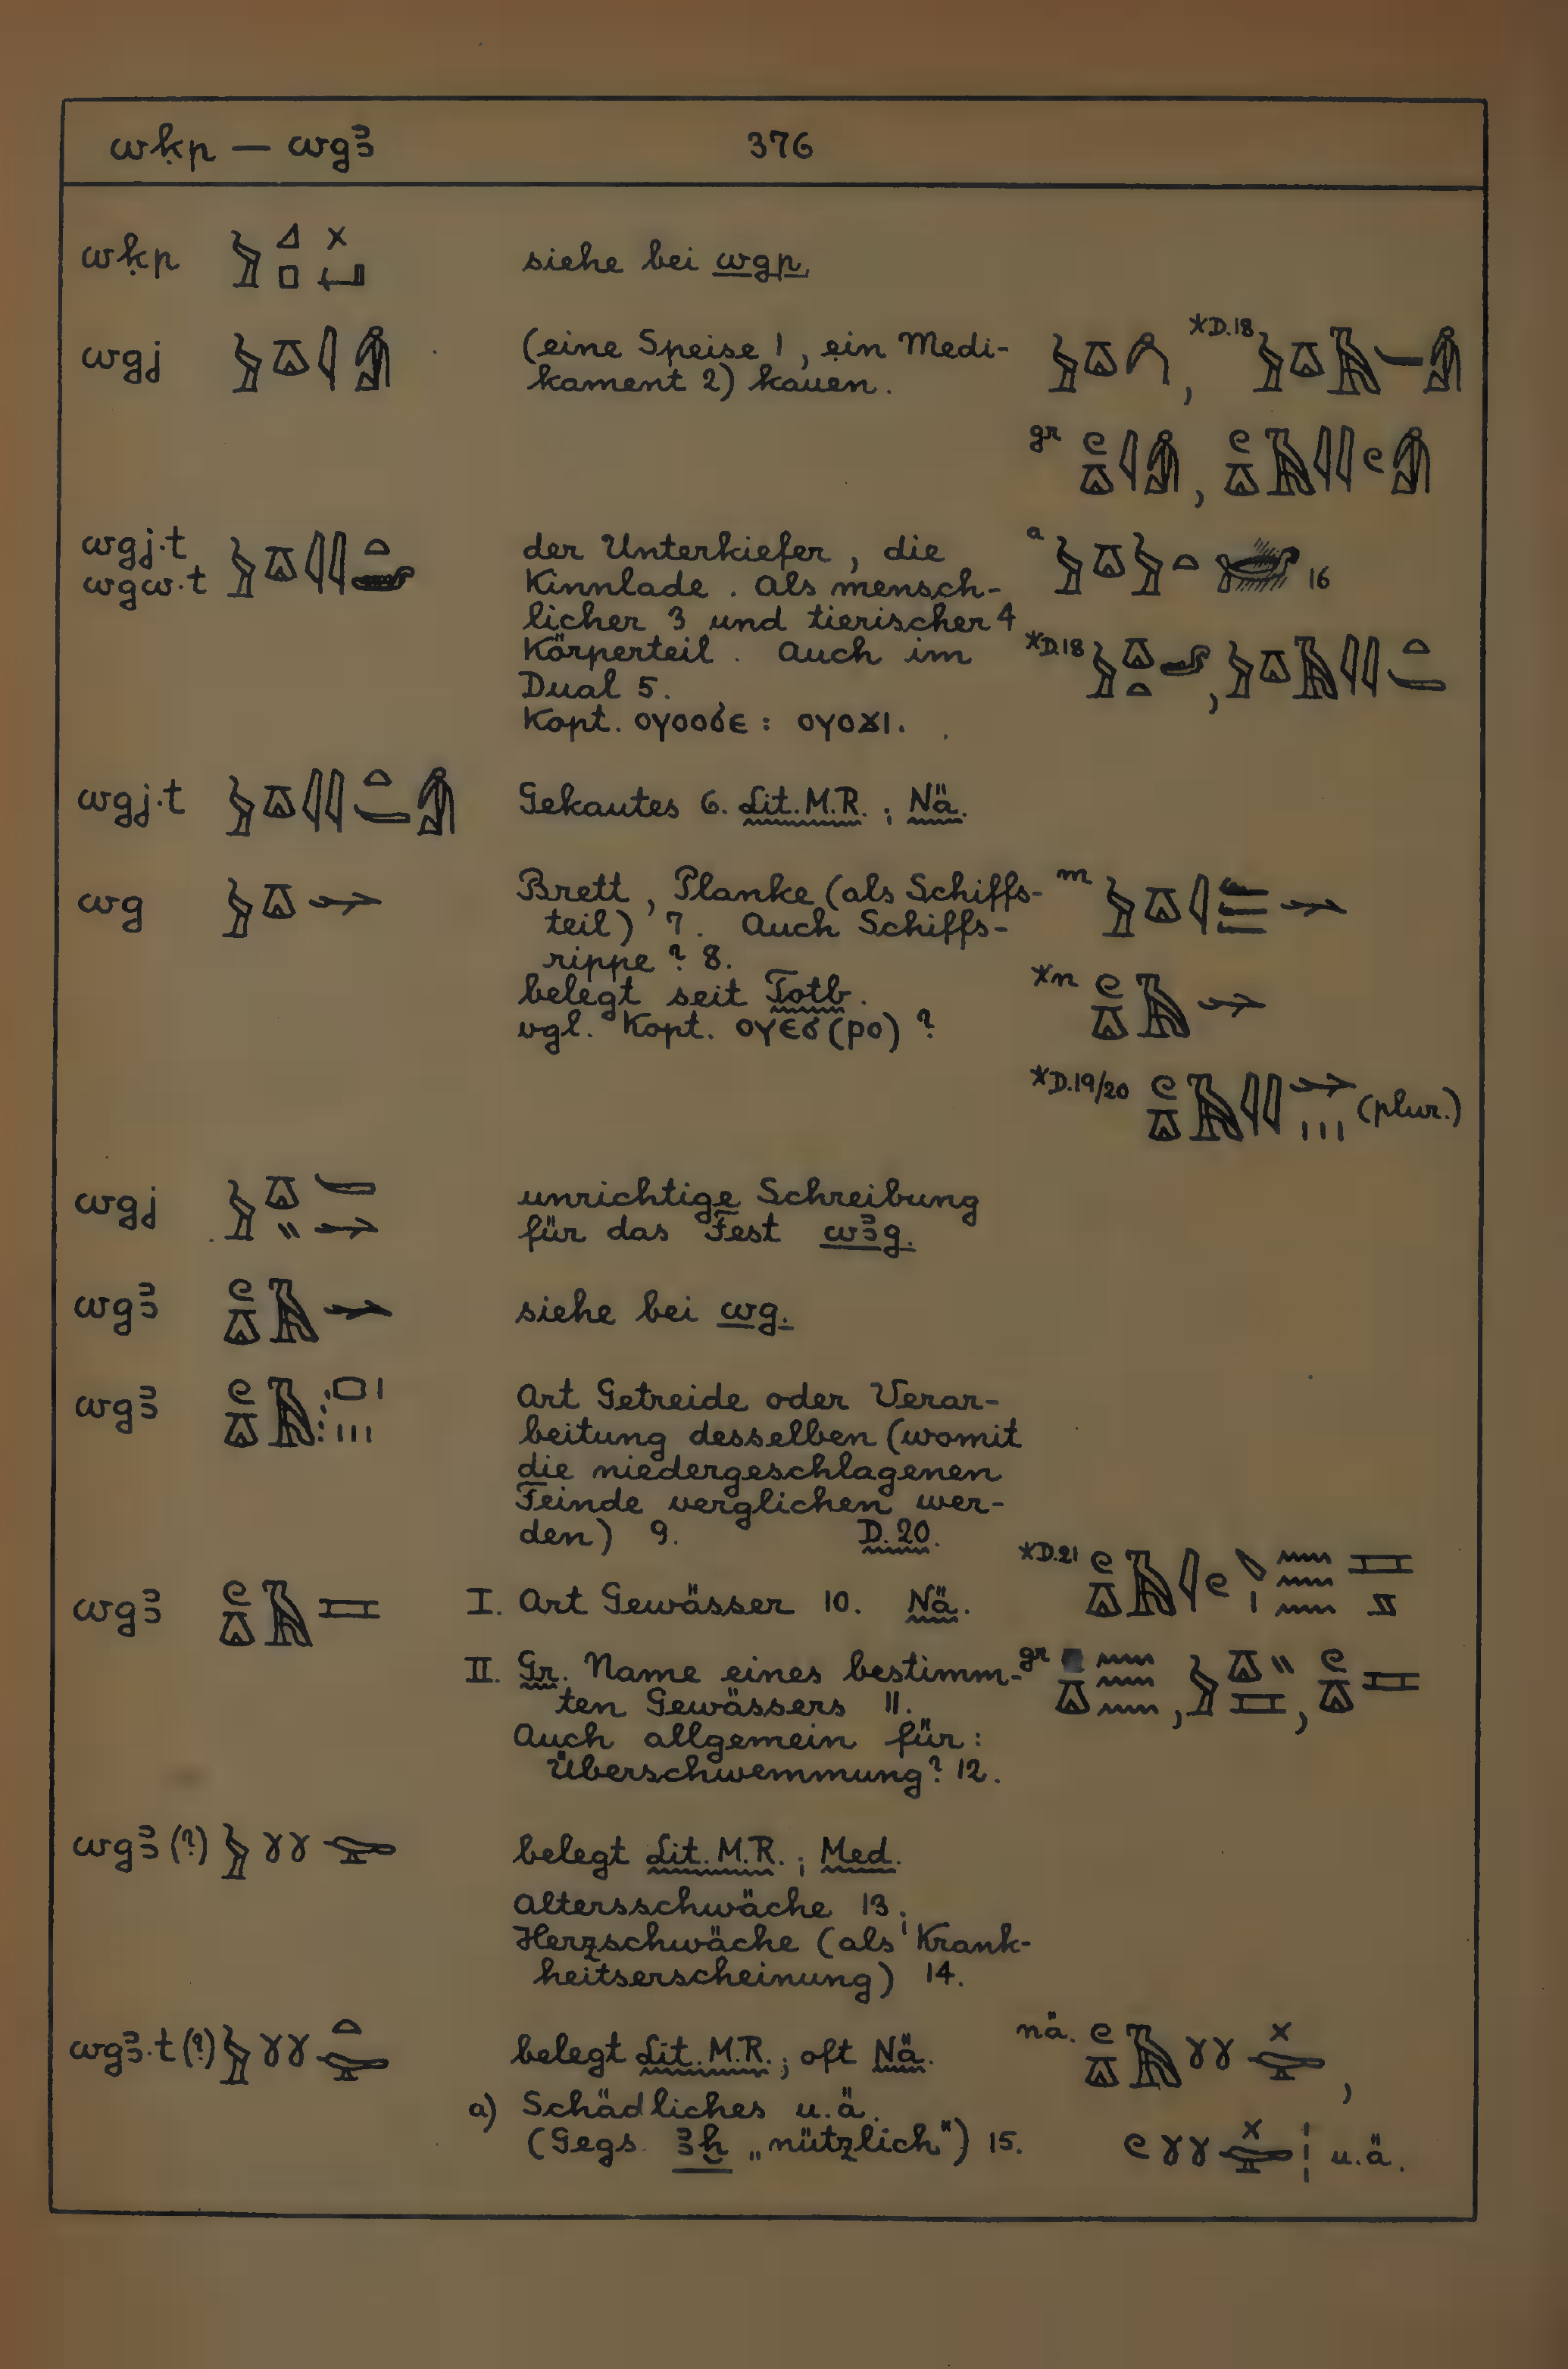 wḳp — wgꜣ 376
wḳp siehe bei wgp.
wgj (eine Speise 1, ein Medi- *D.18
kament 2) kauen.
gr
wgj.t der Unterkiefer, die a 16
wgw.t Kinnlade. Als mensch-
licher 3 und tierischer 4
Körperteil. Auch im *D.18
Dual 5.
Kopt. ⲟⲩⲟⲟϭⲉ : ⲟⲩⲟϫⲓ.
wgj.t Gekautes 6. Lit. M.R.; Nä.
wg Brett, Planke (als Schiffs- m
teil) 7. Auch Schiffs-
rippe? 8. *n
belegt seit Totb.
vgl. Kopt. ⲟⲩⲉϭ(ⲣⲟ)?
*D.19/20 (plur.)
wgj unrichtige Schreibung
für das Fest wꜣg.
wgꜣ siehe bei wg.
wgꜣ Art Getreide oder Verar-
beitung desselben (womit
die niedergeschlagenen
Feinde verglichen wer-
den) 9. D. 20.
wgꜣ I. Art Gewässer 10. Nä. *D.21
II. Gr. Name eines bestimm- gr
ten Gewässers 11.
Auch allgemein für:
Überschwemmung? 12.
wgꜣ (?) belegt Lit. M.R.; Med.
Altersschwäche 13;
Herzschwäche (als Krank-
heitserscheinung) 14.
wgꜣ.t (?) belegt Lit. M.R.; oft Nä. nä.
a) Schädliches u.ä.
(Gegs. ꜣḫ „nützlich") 15. u.ä.